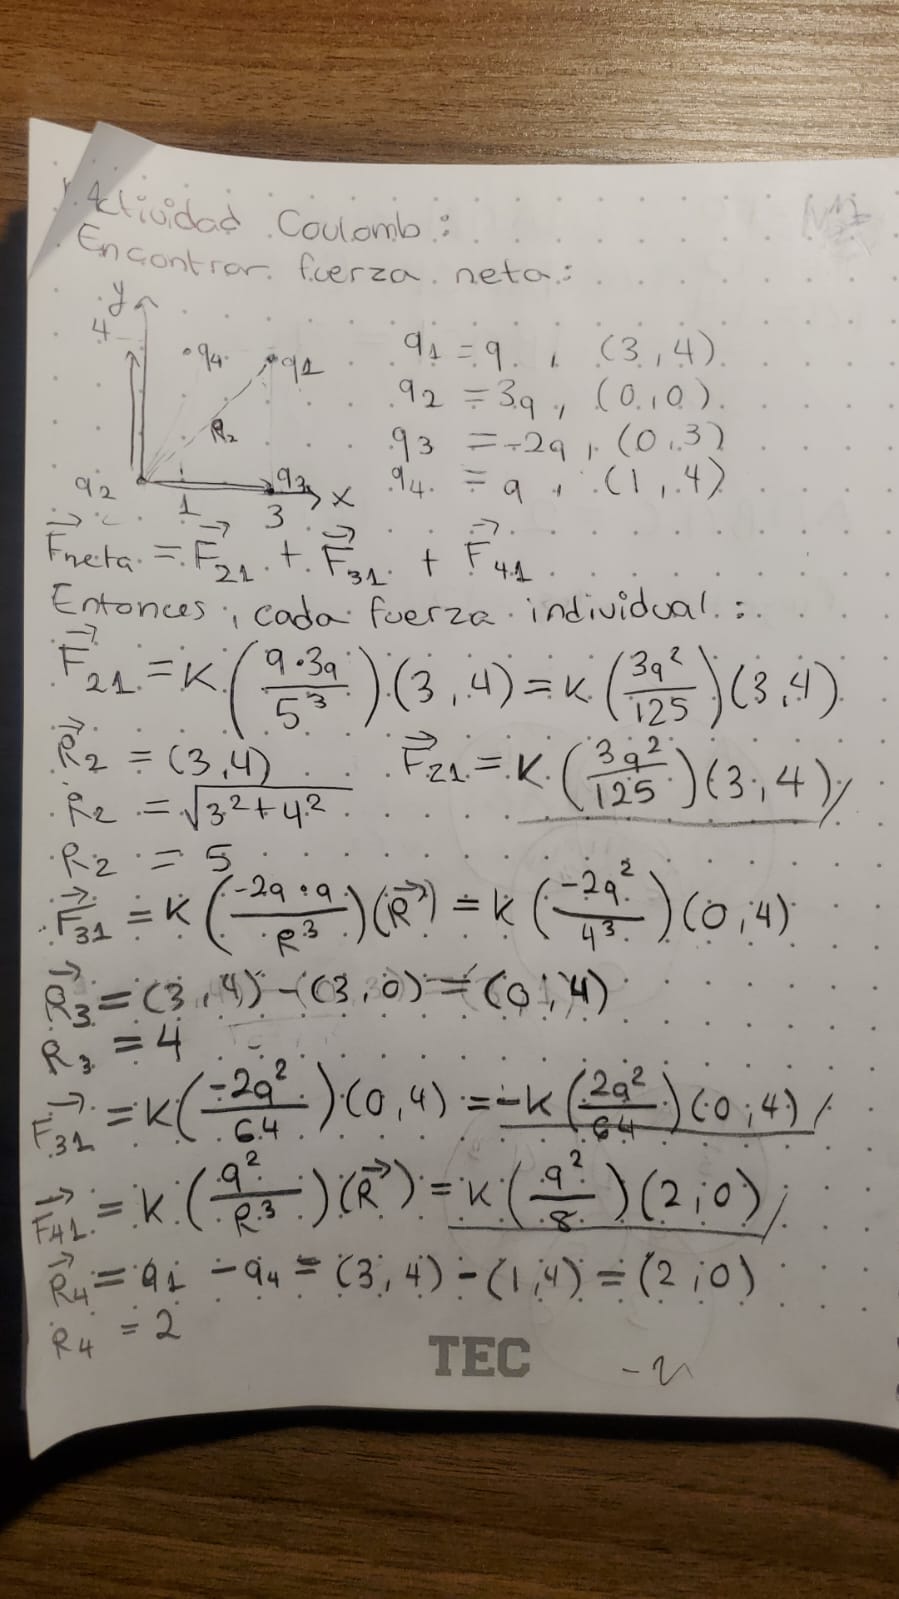 Actividad Coulomb:
Encontrar fuerza neta:
y
4
q4
q1
R2
q2
q3
1
3
x
q1 = q, (3,4)
q2 = 3q, (0,0)
q3 = -2q, (0,3)
q4 = q, (1,4)
F⃗neta = F⃗21 + F⃗31 + F⃗41
Entonces, cada fuerza individual:
F⃗21 = K(q·3q/5³)(3,4) = K(3q²/125)(3,4)
R⃗2 = (3,4)
F⃗21 = K(3q²/125)(3,4)
R2 = √3²+4²
R2 = 5
F⃗31 = K(-2q·q/R³)(R⃗) = K(-2q²/4³)(0,4)
R⃗3 = (3,4) - (3,0) = (0,4)
R3 = 4
F⃗31 = K(-2q²/64)(0,4) = -K(2q²/64)(0,4)
F⃗41 = K(q²/R³)(R⃗) = K(q²/8)(2,0)
R⃗4 = q1 - q4 = (3,4) - (1,4) = (2,0)
R4 = 2
TEC